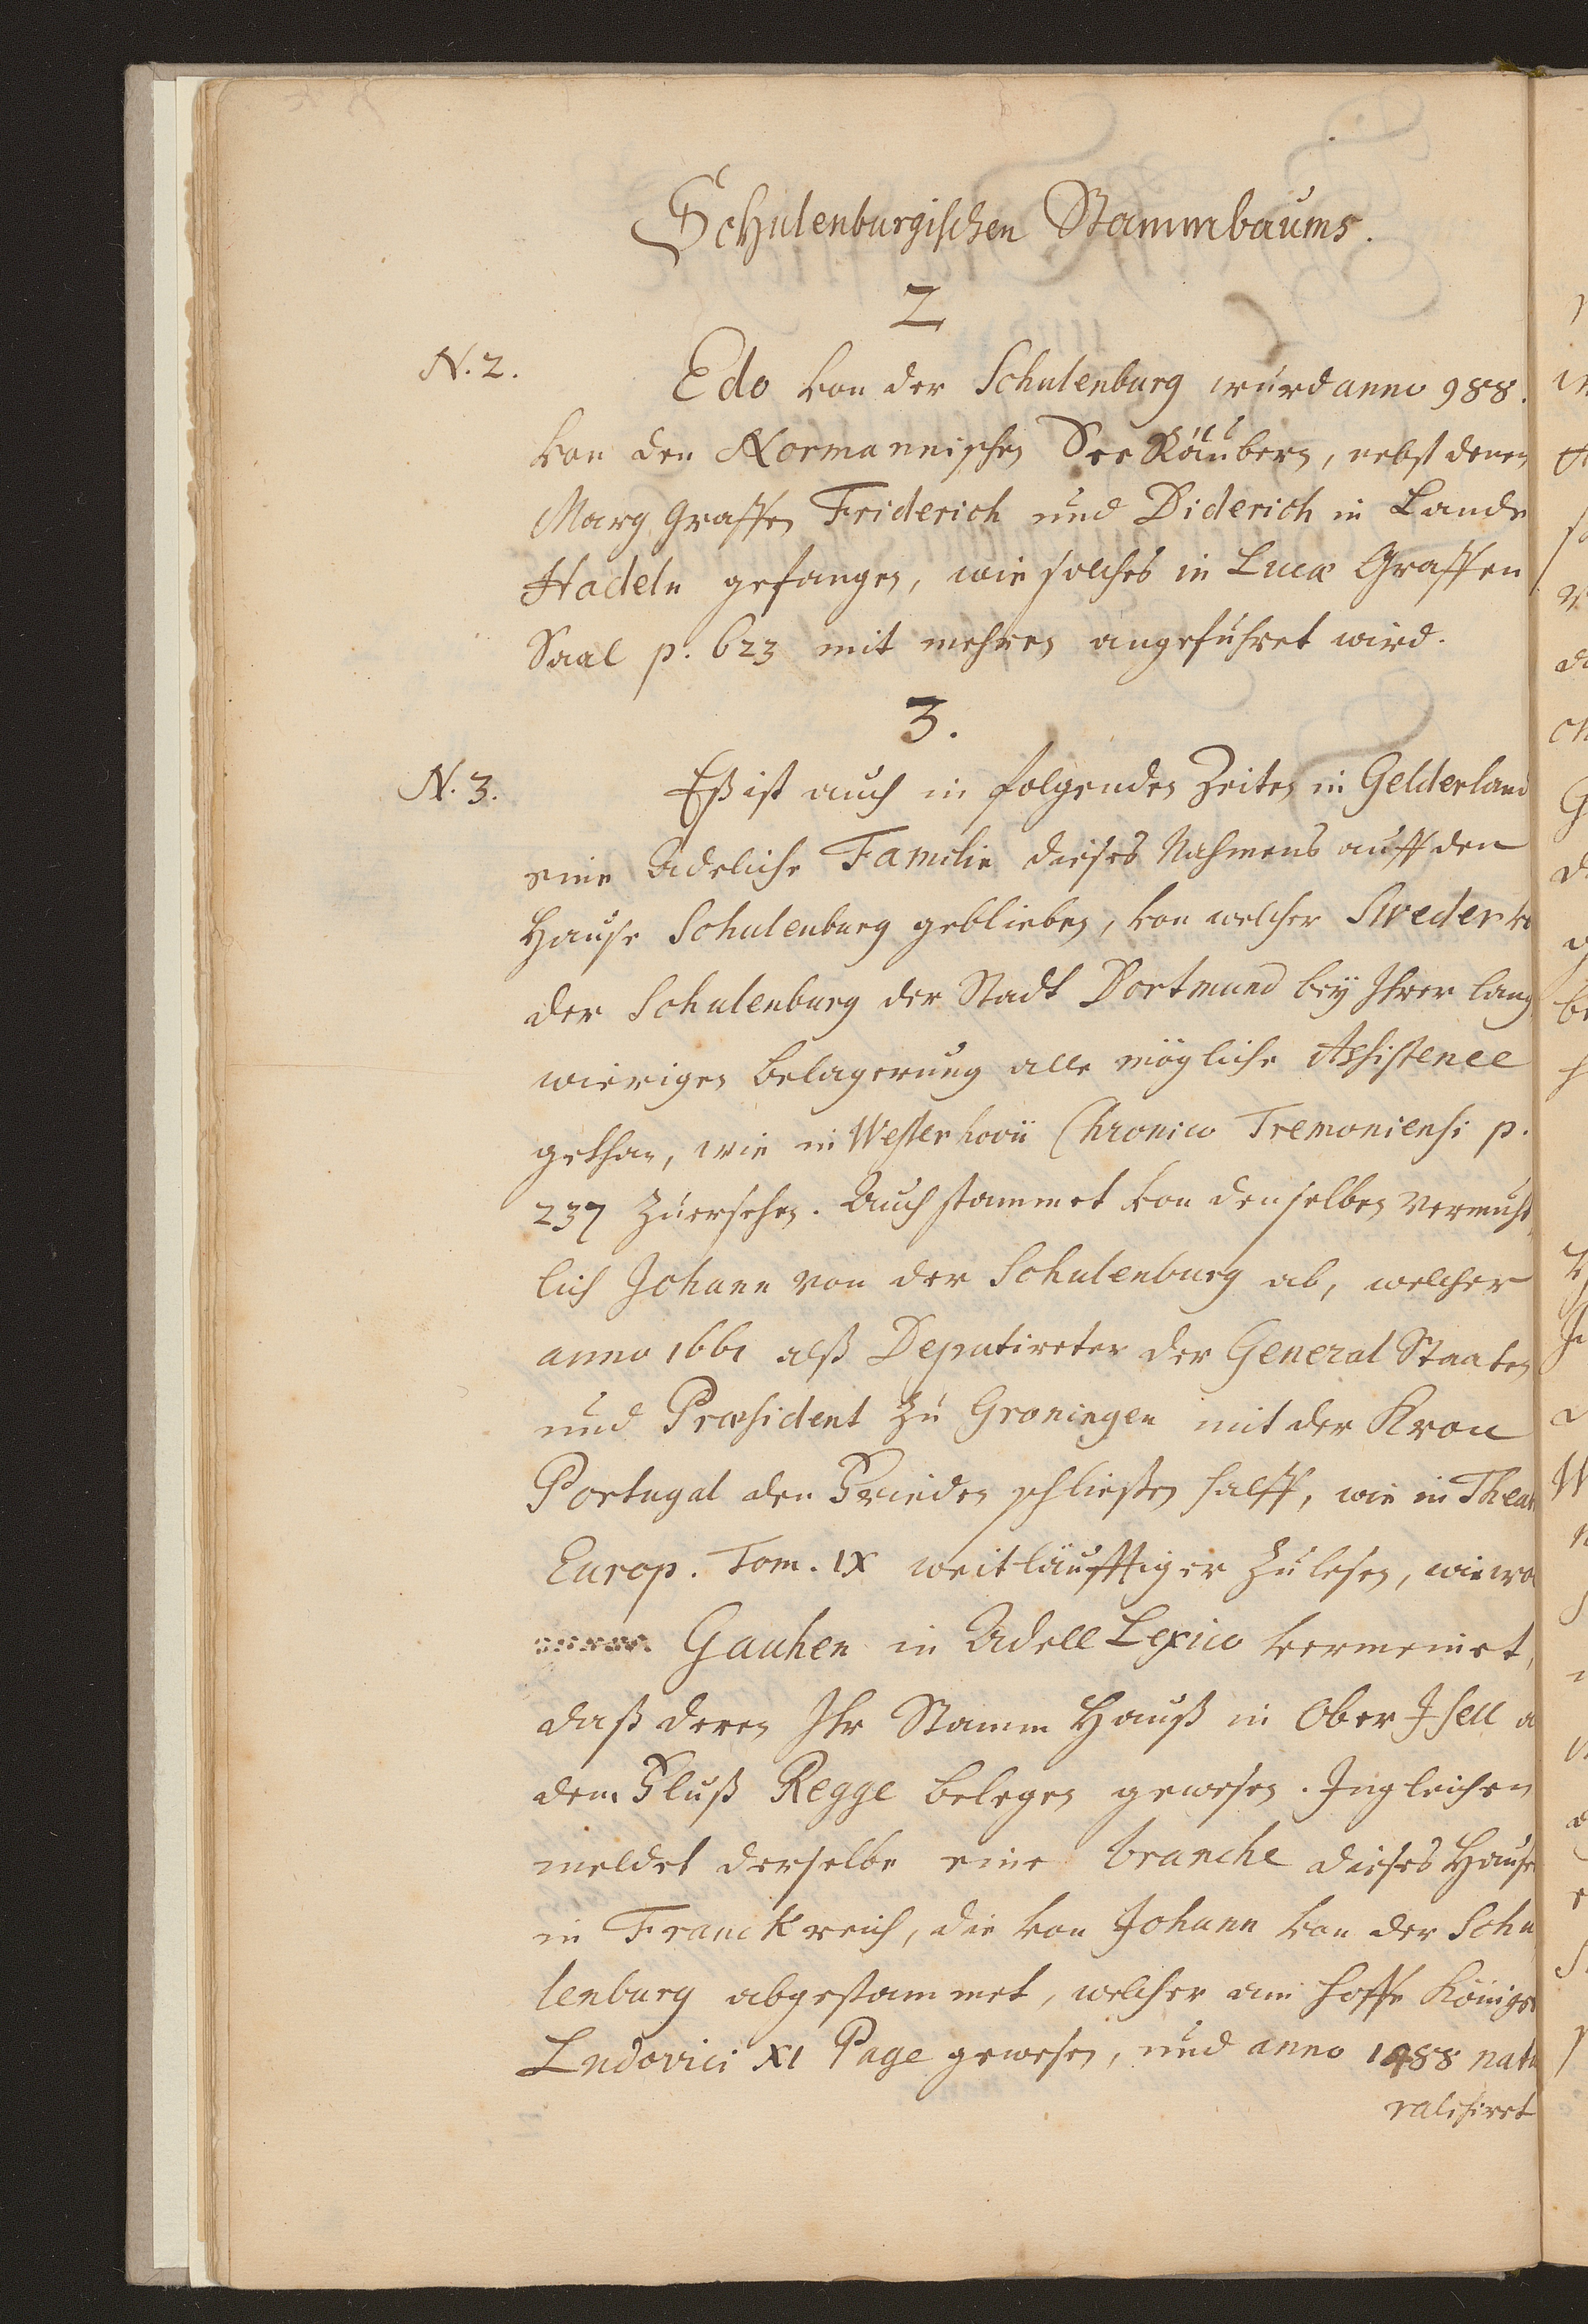 Schulenburgischen Stammbaums.
2
N. 2.
Edo von der Schulenburg wurd anno 988.
von den Normannischen See Räubern, nebst denen
Marg Graffen Friderich und Diderich in Lande
Hadeln gefangen, wie solches in Lucæ Graffen
Saal p. 623 mit mehren angeführet wird.
3.
N. 3.
Eß ist auch in folgenden Zeiten in Gelderland
eine Adeliche Familie dieses Nahmens auff den
Hause Schulenburg geblieben, von welcher Sweder vo
der Schulenburg der Stadt Dortmund bey Ihrer lang
wierigen belagerung alle mögliche Assistence
gethan, wie in Westerhovii Chronico Tremoniensi p.
237 zu ersehen. Auch stammet von denselben vermuht
lich Johann von der Schulenburg ab, welcher
anno 1661 alß Deputireter der General Staaten
und Præsident zu Groningen mit der Kron
Portugal den Frieden schliessen halff, wie in Theat
Europ. Tom. IX weitläufftiger zu lesen, wiewo
Gauhen in Adell Lexico vermeinet,
daß deren Ihr Stamm Hauß in Ober Isell a
dem Fluß Regge belegen gewesen. Ingleichen
meldet derselbe eine branche dieses Hause
in Franckreich, die von Johann von der Schu
lenburg abgestammet, welcher am hoffe Königs
Ludovici XI Page gewesen, und anno 1488 natu
ralisiret